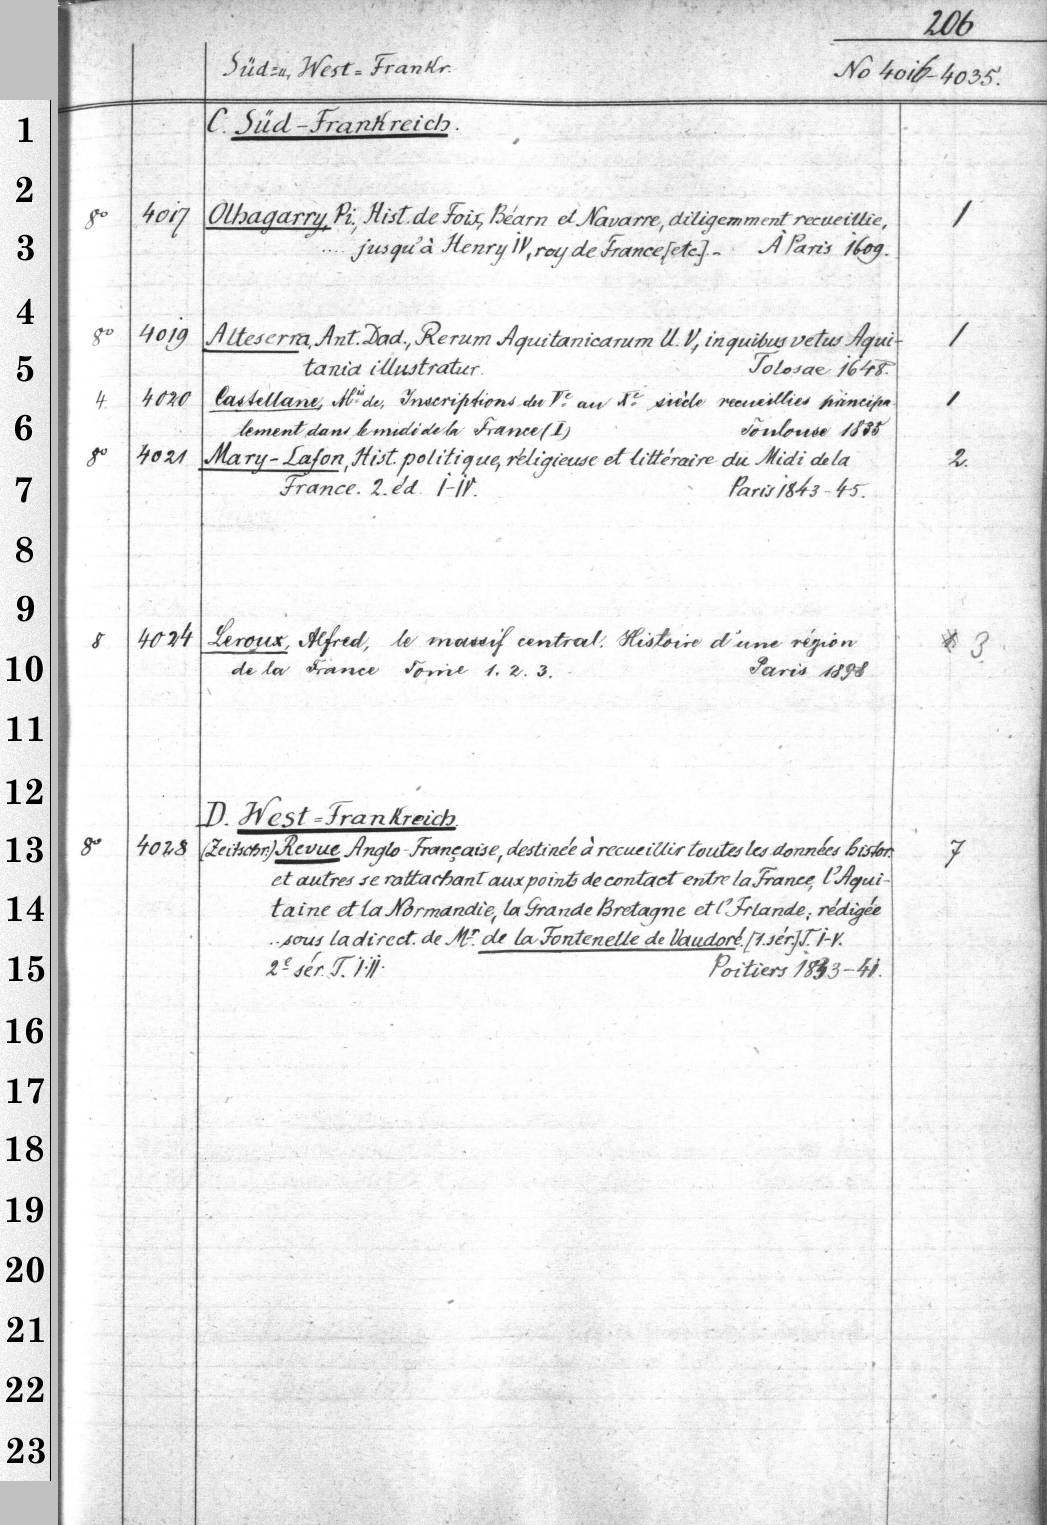 206
Süd= u. West=Frankr.
No 4016-4035.
1
C. Süd-Frankreich.
2
8° 4017 Olhagarry, Pi., Hist. de Foix, Béarn et Navarre, diligemment recueillie, 1
3
.... jusqu'à Henry IV, roy de France [etc.] - À Paris 1609.
4
8° 4019 Alteserra, Ant. Dad., Rerum Aquitanicarum ll. V, in quibus vetus Aqui- 1
5
tania illustratur. Tolosae 1648.
4 4020 Castellane, Mis de, Inscriptions du Ve au Xe siècle recueillies principa- 1
6
lement dans le midi de la France (I) Toulouse 1835
8° 4021 Mary-Lafon, Hist. politique, réligieuse et littéraire du Midi de la 2.
7
France. 2. éd. I-IV. Paris 1843-45.
8
9
8 4024 Leroux, Alfred, le massif central. Histoire d'une région 3
10
de la France Tome 1. 2. 3. Paris 1898
11
12
D. West=Frankreich
13
8° 4028 (Zeitschr.) Revue Anglo-Française, destinée à recueillir toutes les données histor. 7
et autres se rattachant aux points de contact entre la France, l'Aqui-
14
taine et la Normandie, la Grande Bretagne et l'Irlande; rédigée
.. sous la direct. de Mr. de la Fontenelle de Vaudoré. [1. sér.] T. I-V.
15
2e sér. T. I.II. Poitiers 1833-41.
16
17
18
19
20
21
22
23